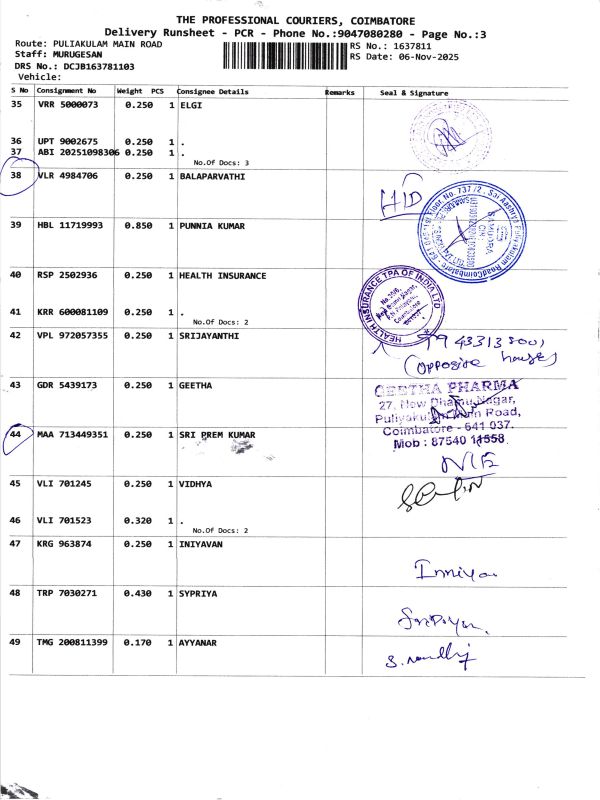 THE PROFESSIONAL COURIERS, COIMBATORE
Delivery Runsheet - PCR - Phone No.:9047080280 - Page No.:3
Route: PULIAKULAM MAIN ROAD
Staff: MURUGESAN
DRS No.: DCJB163781103
Vehicle:
RS No.: 1637811
RS Date: 06-Nov-2025
S No Consignment No Weight PCS Consignee Details Remarks Seal & Signature
35 VRR 5000073 0.250 1 ELGI
36 UPT 9002675 0.250 1 .
37 ABI 20251098306 0.250 1 .
No.Of Docs: 3
38 VLR 4984706 0.250 1 BALAPARVATHI
HID
39 HBL 11719993 0.850 1 PUNNIA KUMAR
40 RSP 2502936 0.250 1 HEALTH INSURANCE
HEALTH INSURANCE TPA OF INDIA LTD
41 KRR 600081109 0.250 1 .
No.Of Docs: 2
42 VPL 972057355 0.250 1 SRIJAYANTHI
(opposite house)
43 GDR 5439173 0.250 1 GEETHA
GEETHA PHARMA
27, New Dhamu Nagar,
Puliyakulam Main Road,
Coimbatore - 641 037.
Mob : 87540 11558
44 MAA 713449351 0.250 1 SRI PREM KUMAR
45 VLI 701245 0.250 1 VIDHYA
46 VLI 701523 0.320 1 .
No.Of Docs: 2
47 KRG 963874 0.250 1 INIYAVAN
48 TRP 7030271 0.430 1 SYPRIYA
49 TMG 200811399 0.170 1 AYYANAR
S. nandhj